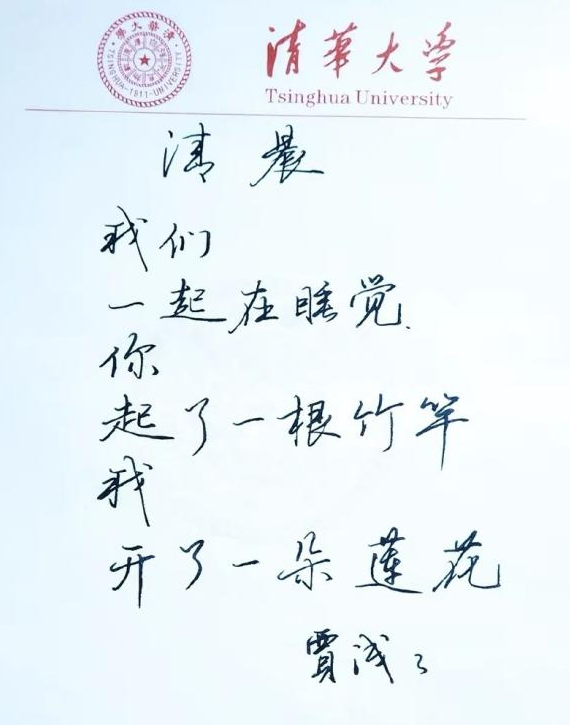 清華大學
TSINGHUA-1911-UNIVERSITY
清华大学
Tsinghua University
清晨
我们
一起在睡觉.
你
起了一根竹竿
我
开了一朵莲花
贾浅々